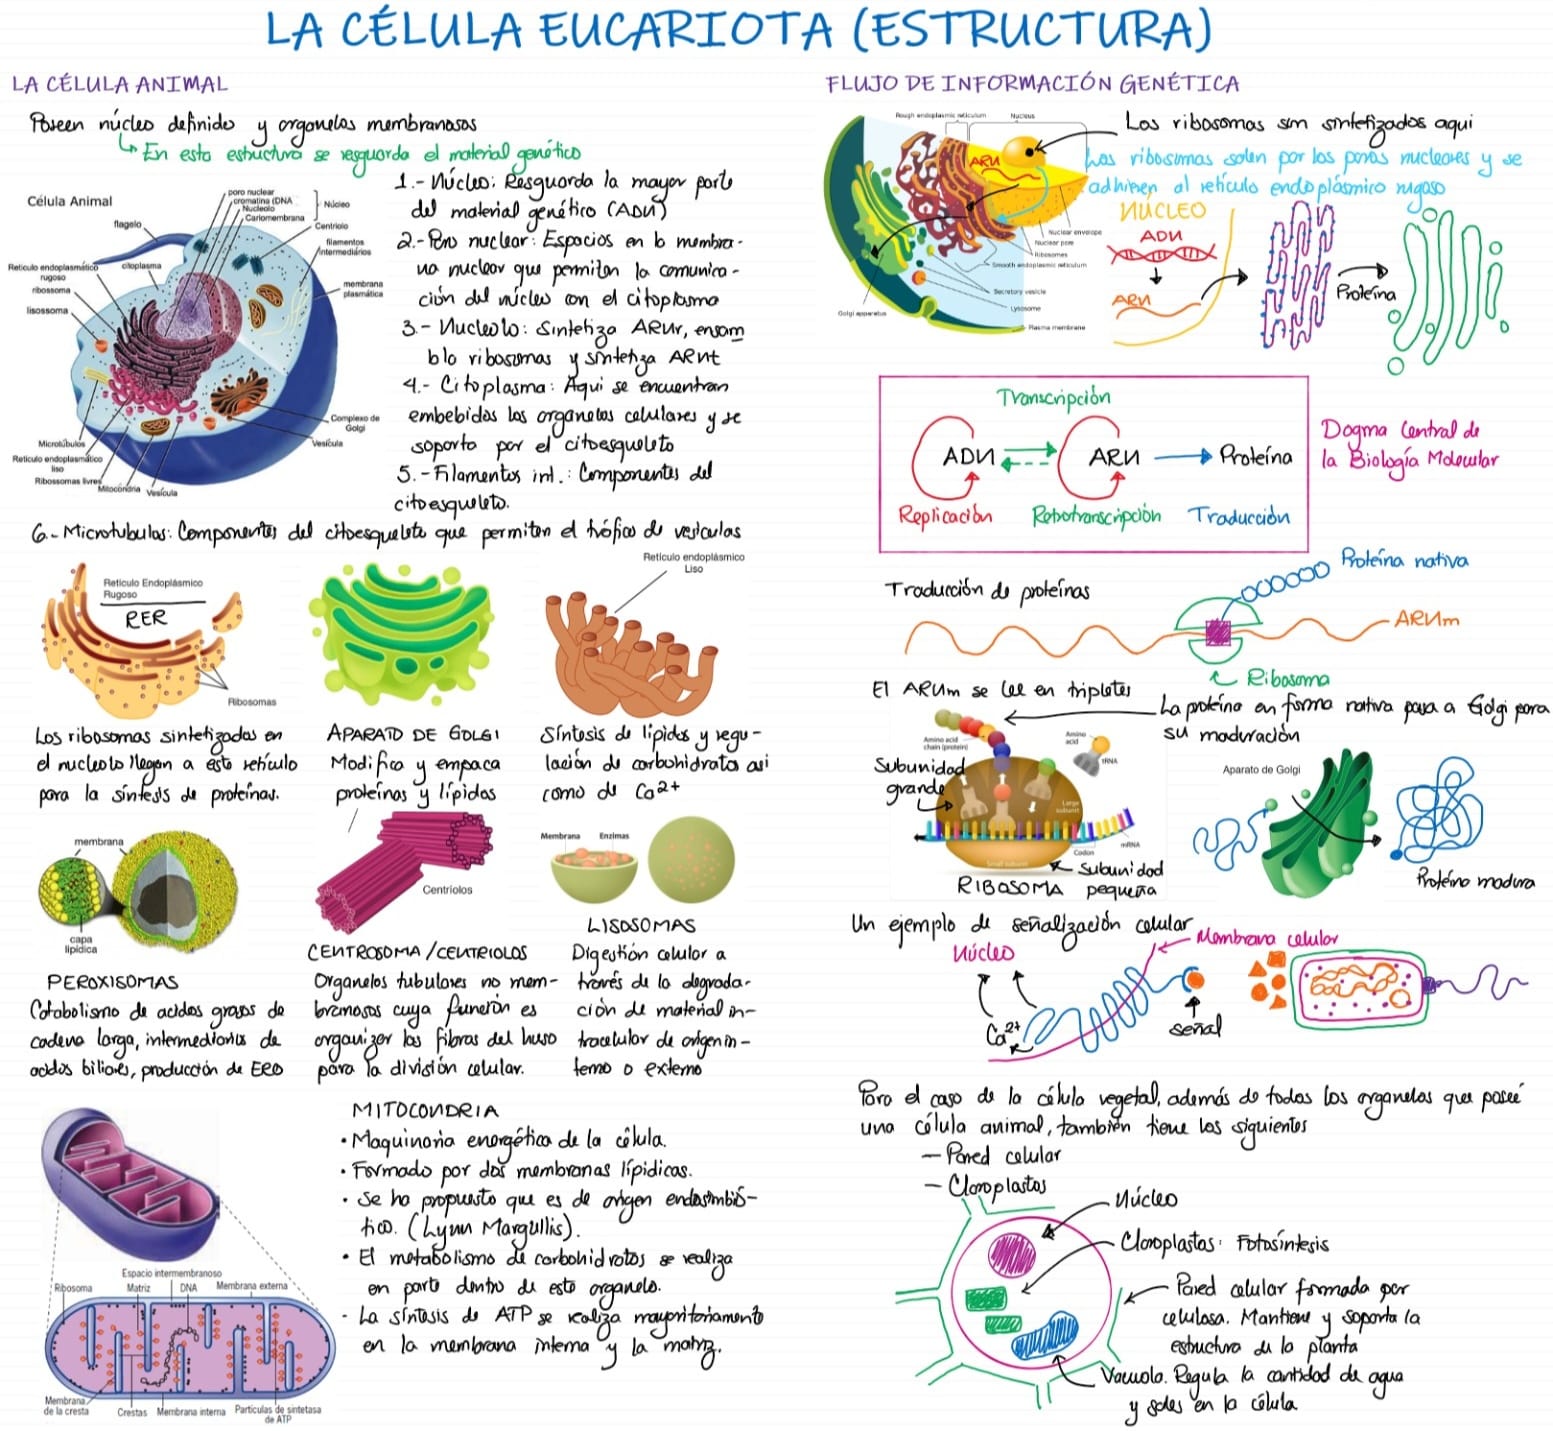 LA CÉLULA EUCARIOTA (ESTRUCTURA)
LA CÉLULA ANIMAL
Poseen núcleo definido y organelos membranosos
En esta estructura se resguarda el material genético
Célula Animal
poro nuclear
cromatina (DNA
Nucleolo
Cariomembrana
Núcleo
Centriolo
flagelo
filamentos
intermediários
Reticulo endoplasmático
rugoso
citoplasma
ribossoma
membrana
plasmática
lisossoma
Complexo de
Golgi
Vesícula
Microtúbulos
Reticulo endoplasmático
liso
Ribossomas livres
Mitocôndria
Vesícula
1.- Núcleo: Resguarda la mayor parte
del material genético (ADN)
2.- Poro nuclear: Espacios en la membra-
na nuclear que permiten la comunica-
ción del núcleo con el citoplasma
3.- Nucleolo: Sintetiza ARNr, ensam
bla ribosomas y sintetiza ARNt
4.- Citoplasma: Aqui se encuentran
embebidos los organelos celulares y se
soporta por el citoesqueleto
5.- Filamentos int.: Componentes del
citoesqueleto.
6.- Microtubulos: Componentes del citoesqueleto que permiten el tráfico de vesiculas
Retículo Endoplásmico
Rugoso
RER
Ribosomas
Los ribosomas sintetizados en
el nucleolo llegan a este retículo
para la síntesis de proteínas.
APARATO DE GOLGI
Modifica y empaca
proteínas y lípidos
Retículo endoplásmico
Liso
Síntesis de lípidos y regu-
lación de carbohidratos asi
como de Ca2+
membrana
capa
lipídica
PEROXISOMAS
Catabolismo de acidos grasos de
cadena larga, intermediarios de
acidos biliares, producción de ERO
Centriolos
CENTROSOMA/CENTRIOLOS
Organelos tubulares no mem-
branosos cuya función es
organizar las fibras del huso
para la división celular.
Membrana
Enzimas
LISOSOMAS
Digestión celular a
través de la degrada-
ción de material in-
tracelular de origen in-
terno o externo
MITOCONDRIA
• Maquinaria energética de la célula.
• Formado por dos membranas lipídicas.
• Se ha propuesto que es de origen endosimbió-
tico. (Lynn Margullis).
• El metabolismo de carbohidratos se realiza
en parte dentro de este organelo.
- La síntesis de ATP se realiza mayoritariamente
en la membrana interna y la matriz.
Espacio intermembranoso
Ribosoma
Matriz
DNA
Membrana externa
Membrana
de la cresta
Crestas
Membrana interna
Partículas de sintetasa
de ATP
FLUJO DE INFORMACIÓN GENÉTICA
Rough endoplasmic reticulum
Nucleus
ARN
Nuclear envelope
Nuclear pore
Ribosomes
Smooth endoplasmic reticulum
Secretory vesicle
Lysosome
Golgi apparatus
Plasma membrane
Los ribosomas son sintetizados aqui
Los ribosomas salen por los poros nucleares y se
adhieren al retículo endoplásmico rugoso
NÚCLEO
ADN
ARN
Proteína
Transcripción
ADN
ARN
Proteína
Replicación
Retrotranscripción
Traducción
Dogma Central de
la Biología Molecular
Traducción de proteínas
Proteína nativa
ARNm
Ribosoma
El ARNm se lee en tripletes
La proteína en forma nativa pasa a Golgi para
su maduración
Amino acid
chain (protein)
Amino
acid
tRNA
Subunidad
grande
Large
subunit
mRNA
Codon
Small subunit
Subunidad
pequeña
RIBOSOMA
Aparato de Golgi
Proteína madura
Un ejemplo de señalización celular
Núcleo
Membrana celular
Ca2+
señal
Para el caso de la célula vegetal, además de todos los organelos que poseé
una célula animal, también tiene los siguientes
- Pared celular
- Cloroplastos
Núcleo
Cloroplastos: Fotosíntesis
Pared celular formada por
celulosa. Mantiene y soporta la
estructura de la planta
Vacuola. Regula la cantidad de agua
y sales en la célula